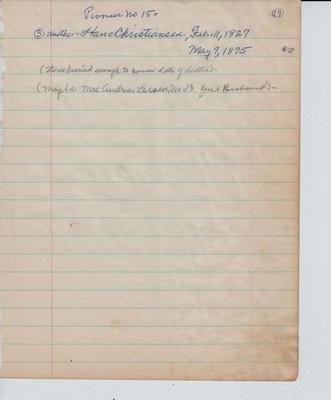 Pioneer No 150 (17)
(3) another - Hans Christiansen, Feb. 11, 1827
May 7, 1875
(stone buried enough to cover date of death).
(Maybe Mrs Andreas Larsen, No. 13 first Husband) -